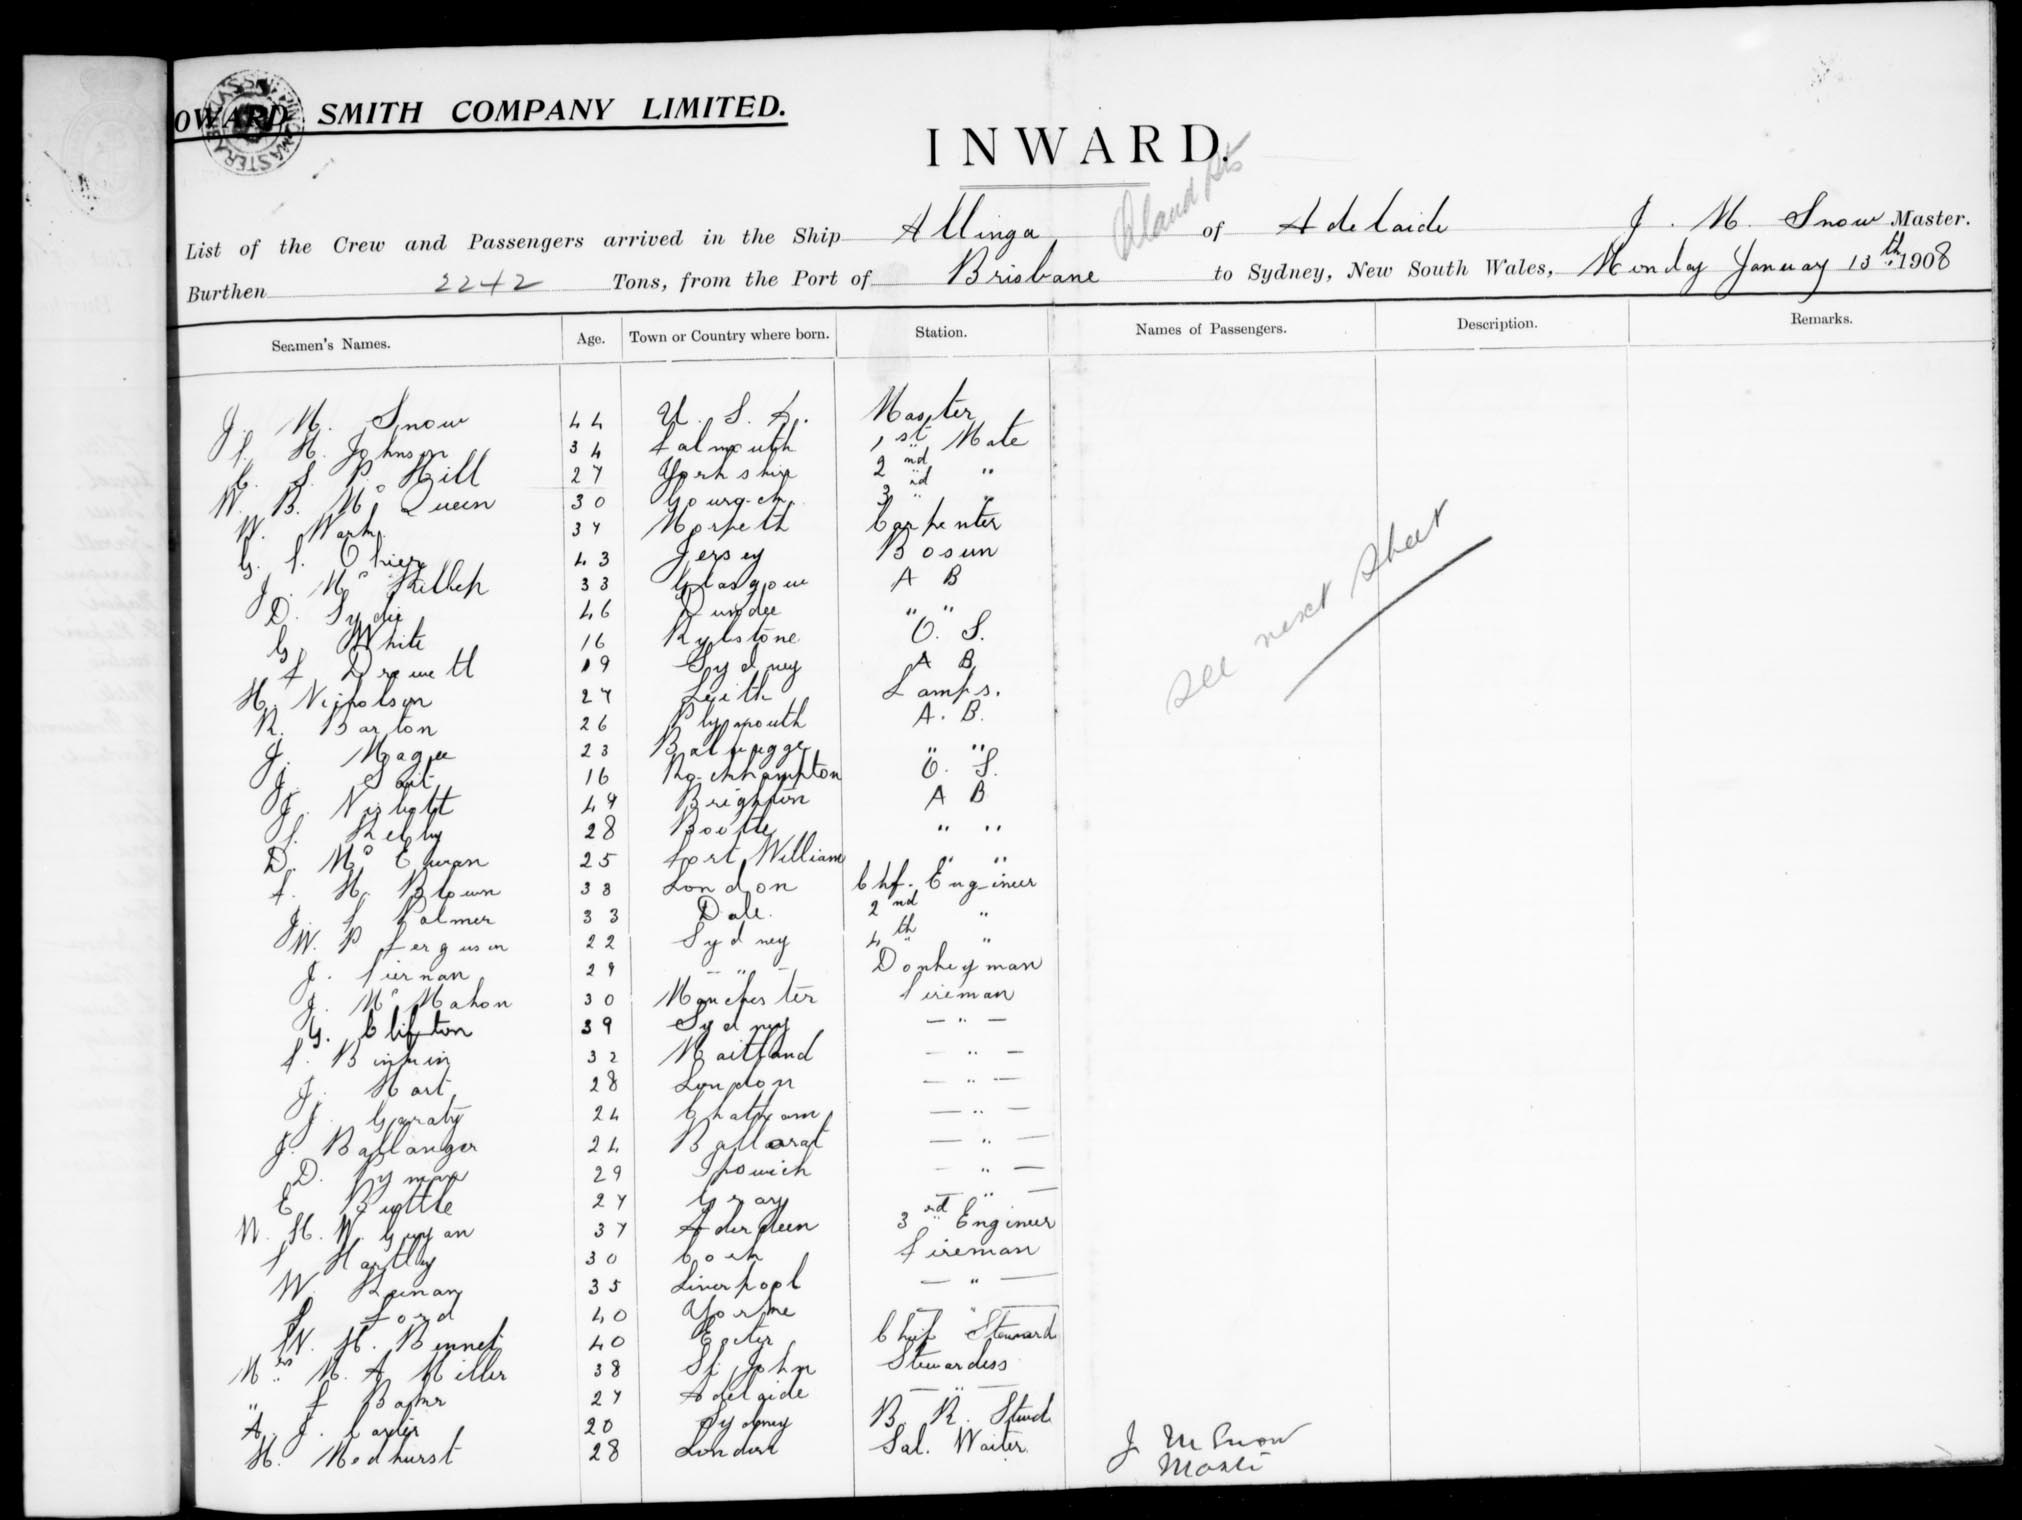 OWARD SMITH COMPANY LIMITED.
INWARD.
List of the Crew and Passengers arrived in the Ship Allinga of Adelaide J. M. Snow Master.
Burthen 2242 Tons, from the Port of Brisbane to Sydney, New South Wales, Monday January 13th 1908
Seamen's Names. Age. Town or Country where born. Station. Names of Passengers. Description. Remarks.
J. M. Snow 44 U. S. A. Master
H. Johnson 34 Falmouth 1st Mate
Hill 27 Yorkshire 2nd "
W. B. Mc Queen 30 Gourock 3rd "
W. Wark 37 Morpeth Carpenter
G. 43 Jersey Bosun
J. Mc Killop 33 Glasgow A B
D. Sydie 46 Dundee " "
G. White 16 Rylstone O. S.
F Drewett 19 Sydney A B
H. Nicholson 27 Leith Lamps.
R. Barton 26 Plymouth A. B.
J. Magee 23 " "
J. 16 Rockhampton O. S.
J. 49 Brighton A B
28 Bootle " "
D. Mc Ewan 25 Fort William " "
F. H. Brown 38 London Chf. Engineer
J. Palmer 33 Dale. 2nd "
W. P Ferguson 22 Sydney 4th "
J. Tiernan 29 — " — Donkeyman
J. Mc Mahon 30 Manchester Fireman
G. Clifton 39 Sydney — " —
32 Maitland — " —
J. Hart 28 London — " —
J. Garaty 24 Chatham — " —
J. Ballanger 24 Ballarat — " —
D. Pyman 29 Ipswich — " —
E Buttle 27 — " —
W. H. W. 37 Aberdeen 3rd Engineer
Hartley 30 Cork Fireman
W. Keenan 35 Liverpool — " —
Ford 40 — " —
W. H. Bennet 40 Exeter Chief Steward
Mrs M. A Miller 38 St John Stewardess
" F 27 Adelaide — " —
A. J. Carter 20 Sydney B. R. Stwd
H. Medhurst 28 London Sal. Waiter
See next sheet
J M Snow
Master